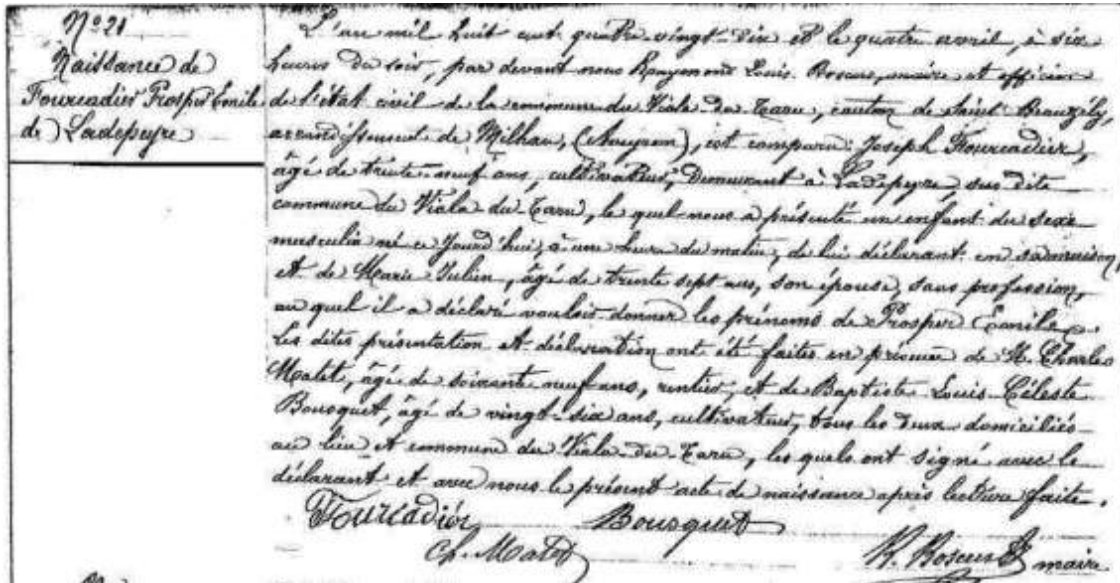 N° 21
Naissance de
Fourcadier Prosper Emile
de Ladepeyre
L'an mil huit cent quatre vingt-dix et le quatre avril, à six
heures du soir, par devant nous Raymond Louis Boscus, maire et officier
de l'état civil de la commune du Viala-du-Tarn, canton de Saint Beauzély,
arrondissement de Milhau, (Aveyron), est comparu: Joseph Fourcadier,
âgé de trente-neuf ans, cultivateur, demeurant à Ladepeyre, sus dite
commune du Viala du Tarn, le quel nous a présenté un enfant du sexe
masculin né ce jourd'hui, à une heure du matin, de lui déclarant en sa maison
et de Marie Julien, âgé de trente sept ans, son épouse, sans profession,
au quel il a déclaré vouloir donner les prénoms de Prosper Emile.
Les dites présentation et déclaration ont été faites en présence de M. Charles
Matet, âgé de soixante neuf ans, rentier, et de Baptiste Louis Céleste
Bousquet, âgé de vingt-six ans, cultivateur, tous les deux domiciliés
au lieu et commune du Viala-du-Tarn, les quels ont signé avec le
déclarant et avec nous le présent acte de naissance après lecture faite.
Fourcadier Bousquet
Ch. Matet R. Boscus maire